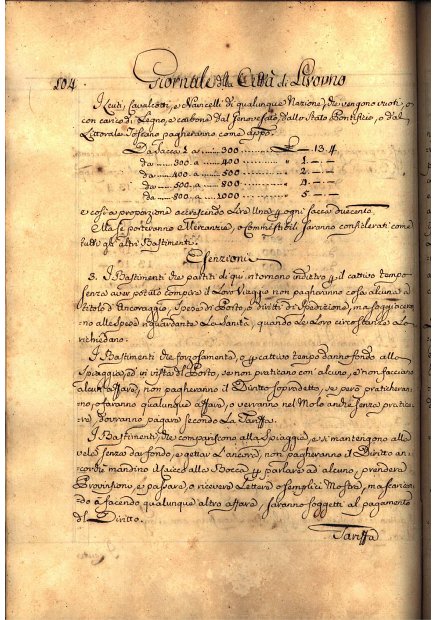 104. Giornale della Città di Livorno
I Leuti, Cavalcotti, e Navicelli di qualunque Nazione, che vengono vuoti, o
con carico di Legno, e carbone dal Genovesato, dallo Stato Pontificio, o dal
Littorale Toscano pagheranno come app.o
Da Sacca 1 a ..... 300 ........ £ — 13.4
da ..... 300. a ..... 400 ........ 1. — —
da ..... 400. a ..... 500 ........ 2 — —
da ..... 500. a ..... 800 ........ 4 — —
da ..... 800. a ..... 1000 ....... 5 — —
e così a proporzione accrescendo Lire Una p ogni sacca duecento.
Ma se porteranno Mercanzie, o Commestibili saranno considerati come
tutti gli altri Bastimenti.
Esenzioni
3. I Bastimenti che partiti di qui ritornono indietro p il cattivo tempo
senza aver potuto compire il Loro Viaggio non pagheranno cosa alcuna a
titolo d'Ancoraggio, Spese di Porto, o diritti di Spedizione, ma soggiacer
no alle Spese riguardante La Sanità, quando le Loro circostanze Lo
richiedano.
I Bastimenti che forzosamente, o p cattivo tempo danno fondo alla
Spiaggia, ed in vista del Porto, se non praticano con alcuno, e non facciano
alcun affare, non pagheranno il Diritto sopradetto, se però praticheran
no, o faranno qualunque affare, o verranno nel Molo anche senza pratica
re, dovranno pagare secondo La Tariffa.
I Bastimenti, che compariscono alla Spiaggia, e si mantengono alla
vela senza dar fondo, e gettar L'ancora, non pagheranno il Diritto an
corchè mandino il Caicco alla Bocca p parlare ad alcuno, prendere
Provvisione, e passare, o ricevere Lettere o semplici Mostre, ma
do a facendo qualunque altro affare, saranno soggetti al pagamento
del Diritto.
Tariffa